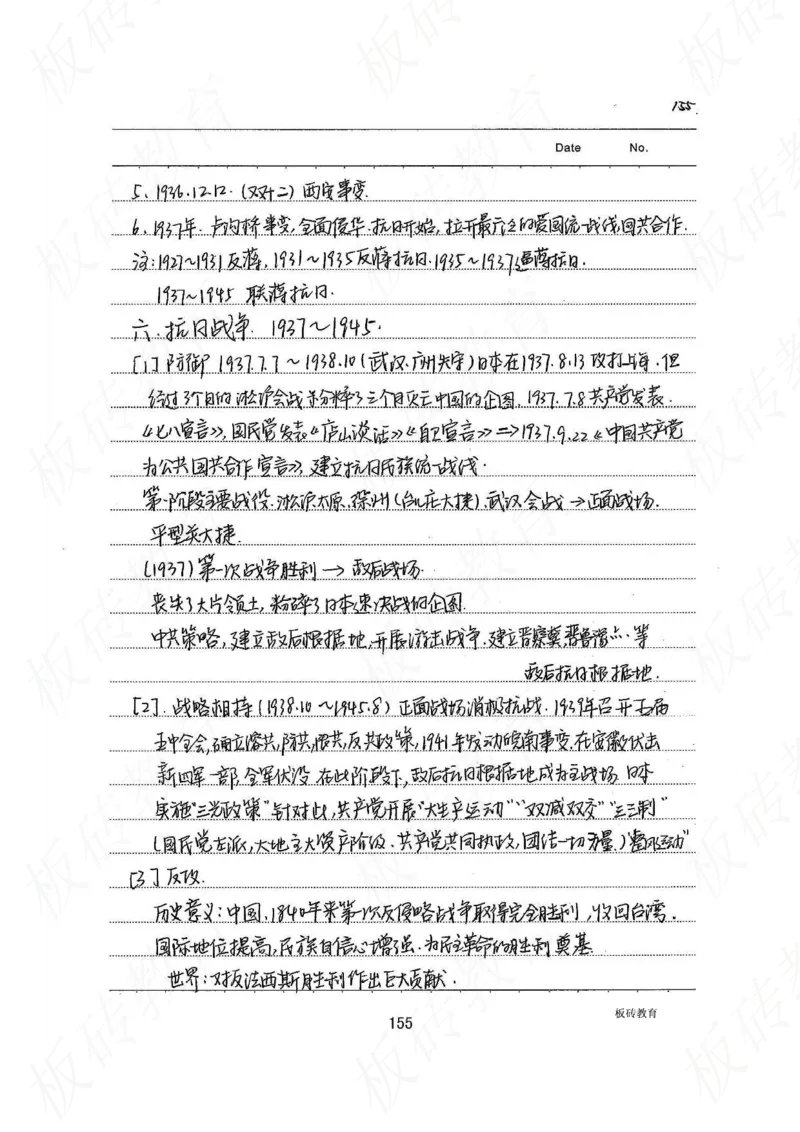 155
Date No.
5、1936.12.12.(双十二) 西安事变.
6、1937年.卢沟桥事变,全面侵华.抗日开始,拉开最广泛的爱国统一战线国共合作.
注:1927~1931反蒋,1931~1935反蒋抗日.1935~1937逼蒋抗日.
1937~1945 联蒋抗日.
六、抗日战争. 1937~1945.
[1]防御 1937.7.7~1938.10(武汉、广州失守)日本在1937.8.13攻打上海.但
经过3个月的淞沪会战粉粹了三个月灭亡中国的企图. 1937.7.8共产党发表.
《七八宣言》,国民党发表《庐山谈话》《自卫宣言》=>1937.9.22《中国共产党
为公共国共合作宣言》,建立抗日民族统一战线.
第一阶段主要战役.淞沪太原、徐州(台儿庄大捷)、武汉会战→正面战场.
平型关大捷.
(1937)第一次战争胜利→敌后战场.
丧失了大片领土,粉碎了日本速决战的企图.
中共策略,建立敌后根据地,开展游击战争.建立晋察冀晋鲁豫..等
敌后抗日根据地.
[2].战略相持(1938.10~1945.8)正面战场消极抗战.1939年召开五届
五中全会,确立溶共,防共,限共,反共政策,1941年发动皖南事变.在安徽伏击
新四军一部,全军伏没.在此阶段下,敌后抗日根据地成为主战场.日本
实施"三光政策"针对此,共产党开展"大生产运动""双减双交""三三制"
(国民党左派,大地主大资产阶级、共产党共同执政,团结一切力量)"整风运动"
[3]反攻.
历史意义:中国,1840年来第一次反侵略战争取得完全胜利,收回台湾.
国际地位提高,民族自信心增强.为民主革命的胜利奠基.
世界:对反法西斯胜利作出巨大贡献.
155
板砖教育